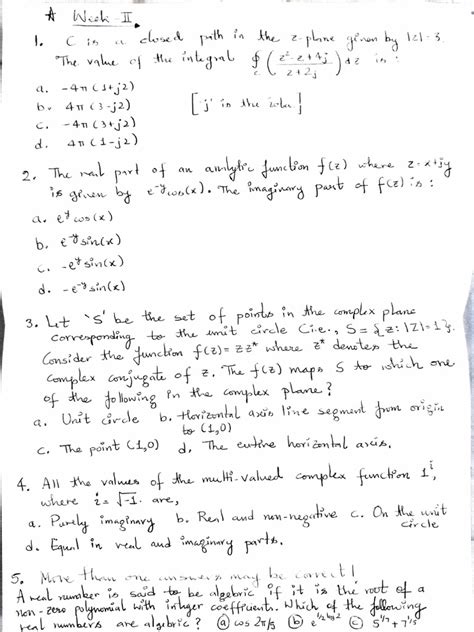 * Week-II
1. C is a closed path in the z-plane given by |z|=3.
The value of the integral ∮c (z²-z+4j / z+2j) dz is :
a. -4π (1+j2)
b. 4π (3-j2) ['j' is the iota]
c. -4π (3+j2)
d. 4π (1-j2)
2. The real part of an analytic function f(z) where z=x+jy
is given by e^-y cos(x). The imaginary part of f(z) is :
a. e^y cos(x)
b. e^-y sin(x)
c. -e^y sin(x)
d. -e^-y sin(x)
3. Let 'S' be the set of points in the complex plane
corresponding to the unit circle (i.e., S = {z: |z|=1}.
Consider the function f(z)= zz* where z* denotes the
complex conjugate of z. The f(z) maps S to which one
of the following in the complex plane?
a. Unit Circle b. Horizontal axis line segment from origin
to (1,0)
c. The point (1,0) d. The entire horizontal axis.
4. All the values of the multi-valued complex function 1^i,
where i=√-1. are,
a. Purely imaginary b. Real and non-negative c. On the unit
circle
d. Equal in real and imaginary parts.
5. More than one answers may be correct!
A real number is said to be algebric if it is the root of a
non-zero polynomial with integer coefficients. Which of the following
real numbers are algebric? (a) cos 2π/5 (b) e^1/2 log2 (c) 5^1/7+7^1/5